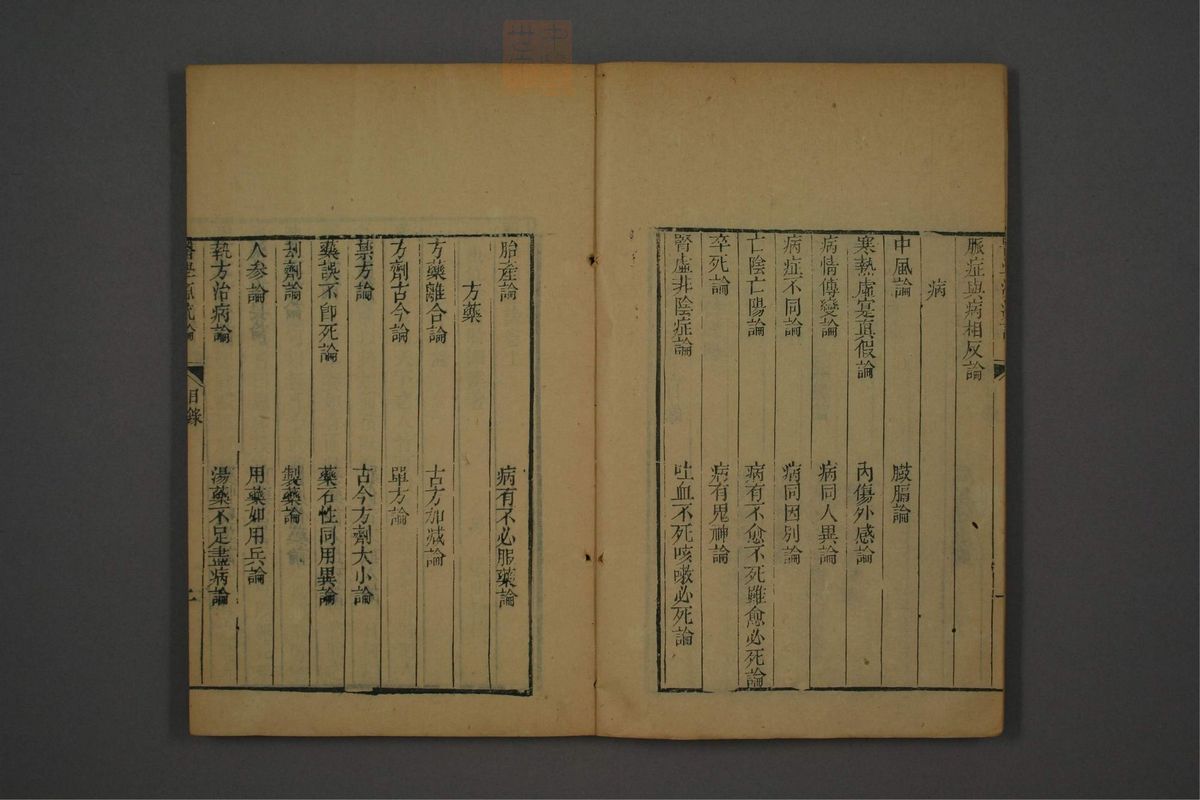 脈症與病相反論
病
中風論
臌膈論
寒熱虛寔眞假論
內傷外感論
病情傳變論
病同人異論
病症不同論
病同因別論
亡陰亡陽論
病有不愈不死雖愈必死論
卒死論
病有鬼神論
腎虛非陰症論
吐血不死咳嗽必死論
胎產論
病有不必服藥論
方藥
方藥離合論
古方加減論
方劑古今論
單方論
禁方論
古今方劑大小論
藥誤不卽死論
藥石性同用異論
劫劑論
製藥論
人參論
用藥如用兵論
執方治病論
湯藥不足盡病論
醫學源流論
目錄
二